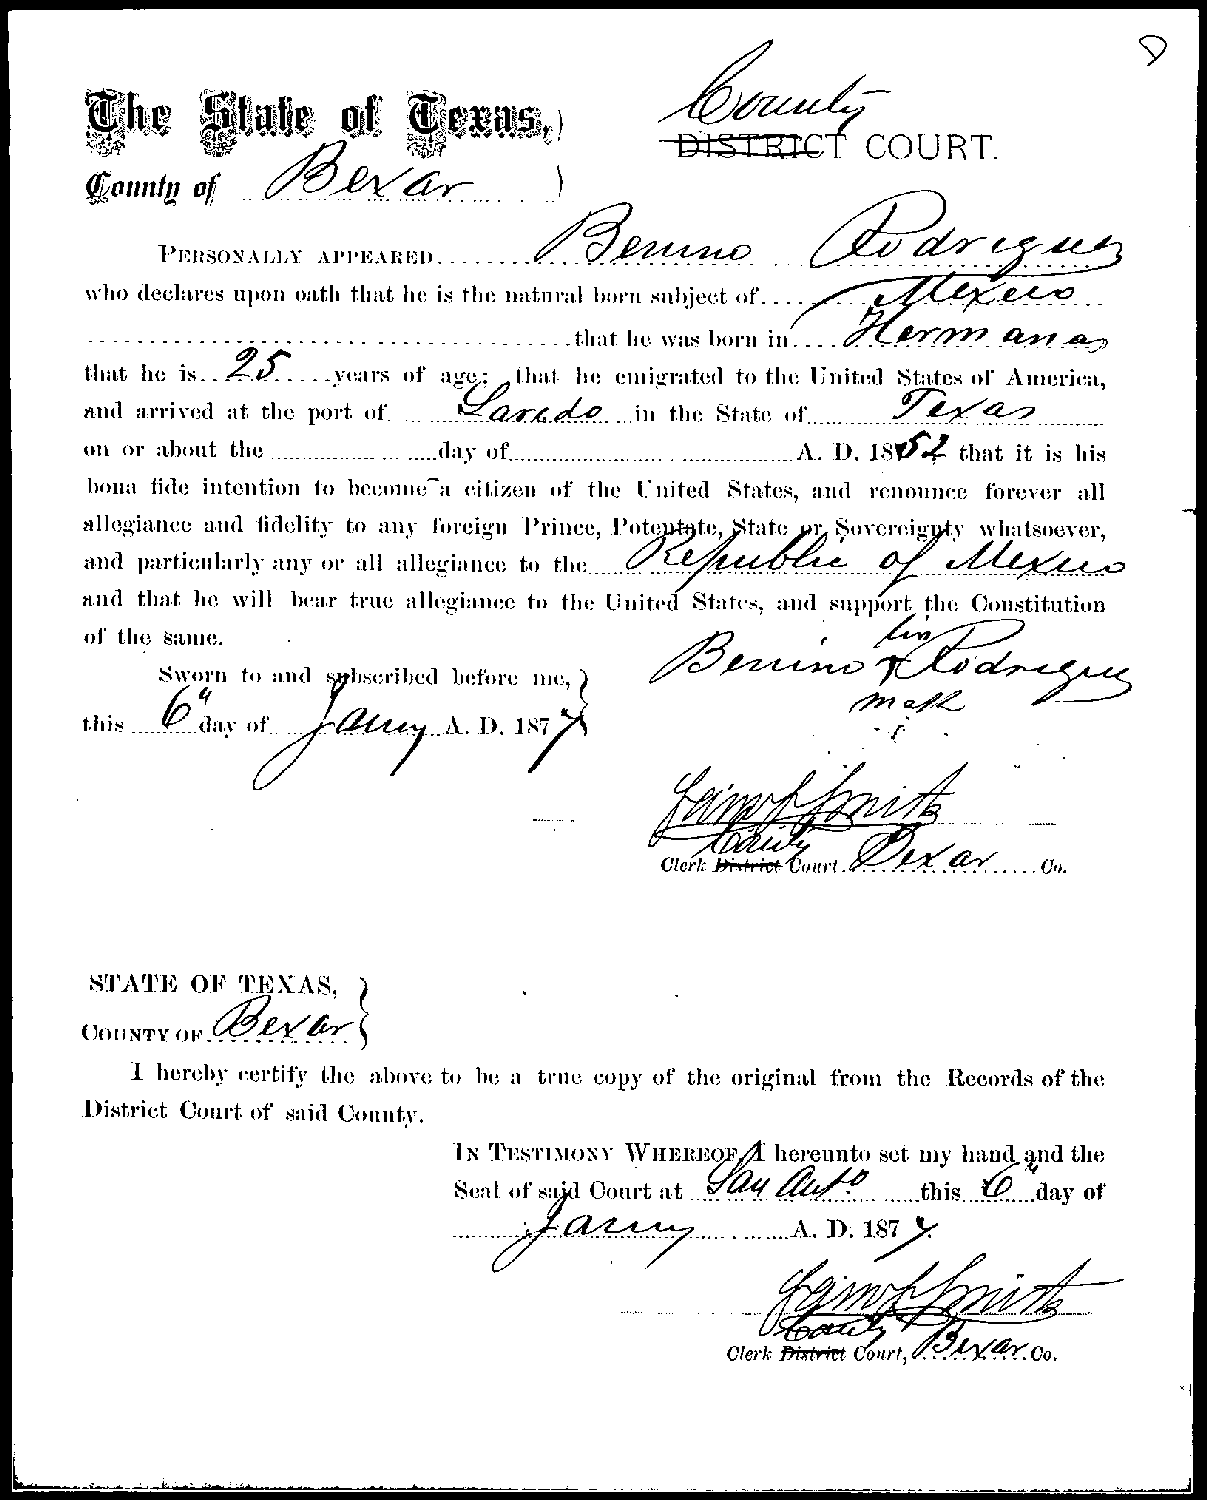 D
County
The State of Texas, )
DISTRICT COURT.
County of Bexar )
PERSONALLY APPEARED Benino Rodriguez
who declares upon oath that he is the natural born subject of Mexico
that he was born in Hermanas
that he is 25 years of age; that he emigrated to the United States of America,
and arrived at the port of Laredo in the State of Texas
on or about the day of A. D. 1852 that it is his
bona fide intention to become a citizen of the United States, and renounce forever all
allegiance and fidelity to any foreign Prince, Potentate, State or Sovereignty whatsoever,
and particularly any or all allegiance to the Republic of Mexico
and that he will bear true allegiance to the United States, and support the Constitution
of the same.
his
Benino x Rodriguez
mark
Sworn to and subscribed before me,
this 6" day of Jany A. D. 1877
Smith
County
Clerk District Court Bexar Co.
STATE OF TEXAS,
COUNTY OF Bexar
I hereby certify the above to be a true copy of the original from the Records of the
District Court of said County.
IN TESTIMONY WHEREOF, I hereunto set my hand and the
Seal of said Court at San Anto. this 6" day of
Jany A. D. 1877
Smith
County
Clerk District Court, Bexar Co.